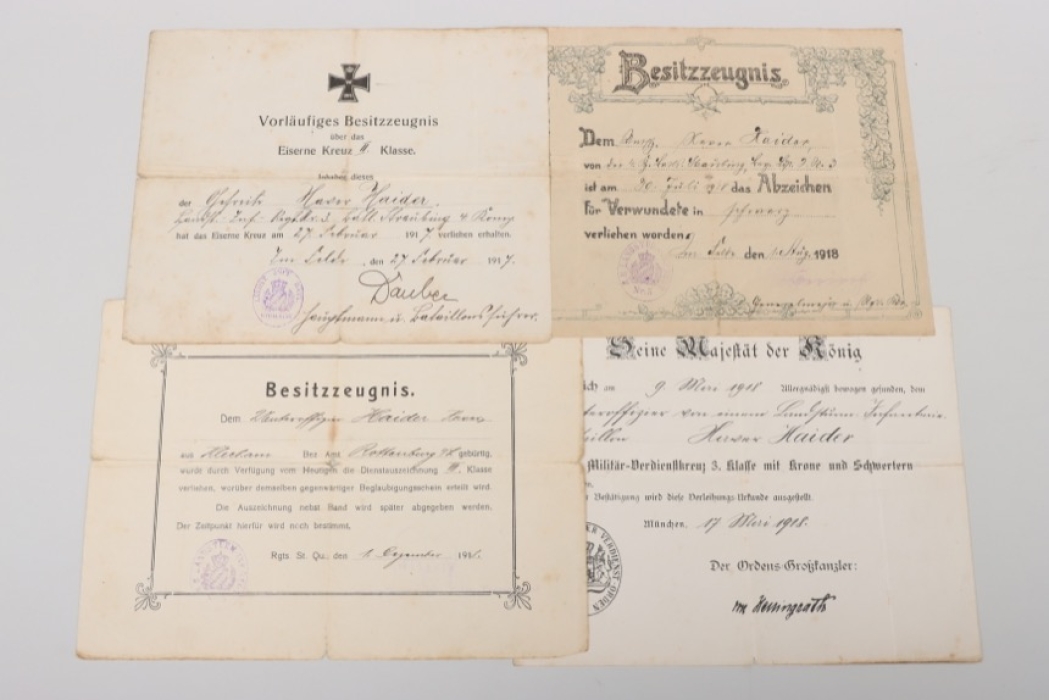 Vorläufiges Besitzzeugnis
über das
Eiserne Kreuz II. Klasse.
Inhaber dieses
der Gefreite Xaver Haider.
Landst. Inf. Regt. Nr. 3, Batl. Straubing 4 Komp
hat das Eiserne Kreuz am 27 Februar 1917 verliehen erhalten.
Im Felde, den 27 Februar 1917.
Dauber
Hauptmann u. Bataillonsführer.
Besitzzeugnis.
Dem Xaver Haider,
von der
ist am 30. Juli 1918 das Abzeichen
für Verwundete in schwarz
verliehen worden.
Im Felde den 1. Aug. 1918
Generalmajor u.
Besitzzeugnis.
Dem Unteroffizier Haider
aus Bez. Amt Rottenburg gebürtig,
wurde durch Verfügung vom Heutigen die Dienstauszeichnung III. Klasse
verliehen, worüber demselben gegenwärtiger Beglaubigungsschein erteilt wird.
Die Auszeichnung nebst Band wird später abgegeben werden.
Der Zeitpunkt hierfür wird noch bestimmt.
Rgts. St. Qu., den 1. Dezember
Seine Majestät der König
ich am 9. März 1918 Allergnädigst bewogen gefunden, dem
teroffizier von einem Landsturm Infanterie
aillon Xaver Haider
Militär-Verdienstkreuz 3. Klasse mit Krone und Schwertern
n.
Bestätigung wird diese Verleihungs-Urkunde ausgestellt.
München, 17 März 1918.
Der Ordens-Großkanzler:
VERDIENST-ORDEN